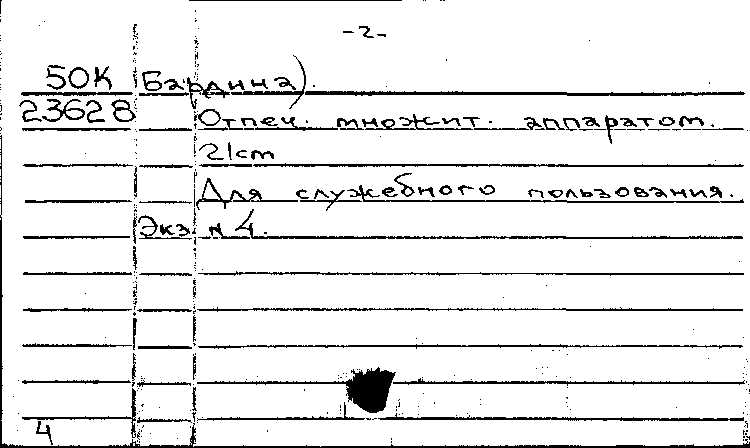 -2-
50К Бардина).
23628 Отпеч. множит. аппаратом.
21cm
Для служебного пользования.
Экз. N 4.
4